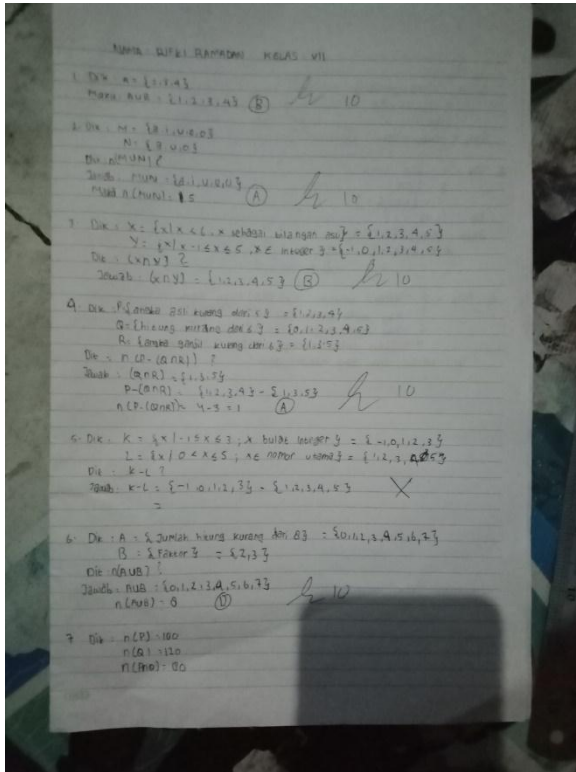 NAMA : RIFKI RAMADAN KELAS : VII
1. Dik A = {1,3,4}
Maka : AUB = {1,2,3,4} (B) 10
2. Dik : M =
N =
Dit : n(MUN)?
Jawab : MUN =
Maka n(MUN) = 5 (A) 10
3. Dik : X = {x/x < 6, x sebagai bilangan asli} = {1,2,3,4,5}
Y = {x/x -1 ≤ x ≤ 5, x ∈ integer} = {-1,0,1,2,3,4,5}
Dit = (x∩y) ?
Jawab : (x∩y) = {1,2,3,4,5} (B) 10
4. Dik : P{angka asli kurang dari 5} = {1,2,3,4}
Q = {hitung kurang dari 6} = {0,1,2,3,4,5}
R = {angka ganjil kurang dari 6} = {1,3,5}
Dit = n(P-(Q∩R)) ?
Jawab : (Q∩R) = {1,3,5}
P-(Q∩R) = {1,2,3,4} - {1,3,5}
n(P-(Q∩R)) = 4-3 = 1 (A) 10
5. Dik : K = {x/-1 ≤ x ≤ 3; x bulat integer} = {-1,0,1,2,3}
L = {x/0 < x ≤ 5; x ∈ nomor utama} = {1,2,3,4,5}
Dit : K-L ?
Jawab : K-L = {-1,0,1,2,3} - {1,2,3,4,5} X
=
6. Dik : A = {Jumlah hitung kurang dari 8} = {0,1,2,3,4,5,6,7}
B = {Faktor} = {2,3}
Dit : n(AUB) ?
Jawab : AUB = {0,1,2,3,4,5,6,7}
n(AUB) = 8 (D) 10
7. Dik : n(P) = 100
n(Q) = 120
n(P∩Q) = 80